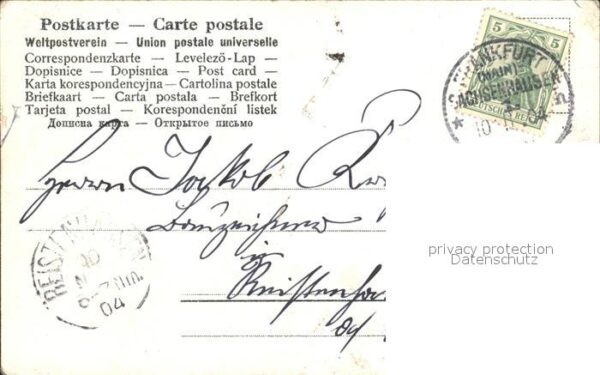 Postkarte — Carte postale
Weltpostverein — Union postale universelle
Correspondenzkarte — Levelező-Lap —
Dopisnice — Dopisnica — Post card —
Karta korespondencyjna — Cartolina postale
Briefkaart — Carta postala — Brefkort
Tarjeta postal — Korespondenční listek
Дописна карта — Открытое письмо
5 5
FRANKFURT
(MAIN)
SACHSENHAUSEN
DEUTSCHES REICH
Herrn Jakob
Bauzeichner
in
privacy protection
Datenschutz
04